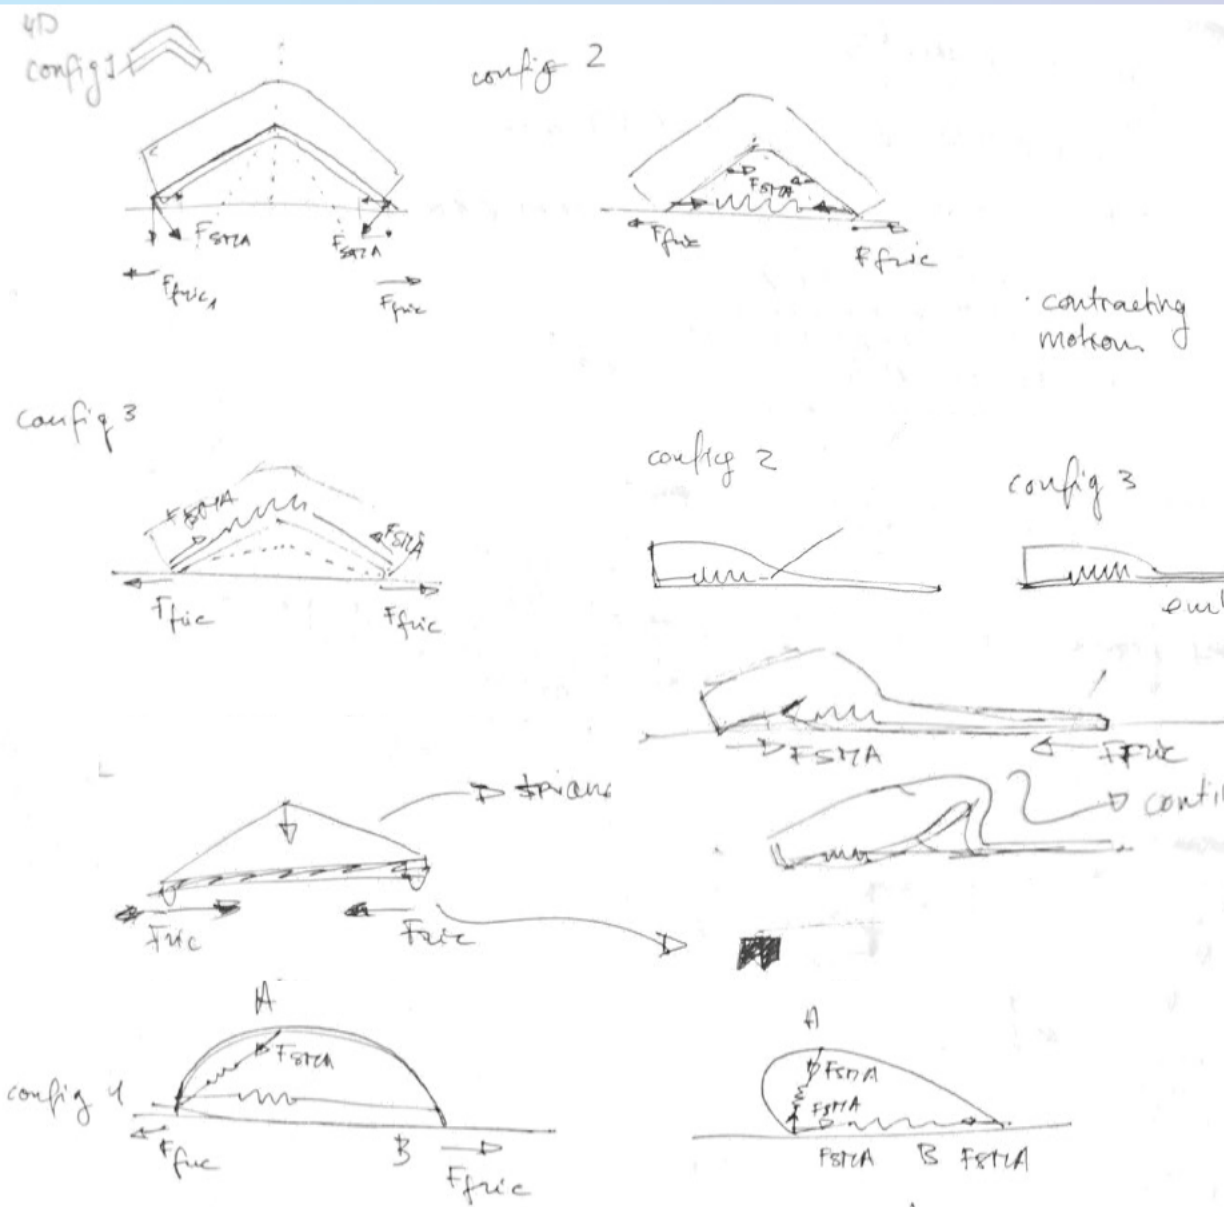 4D
config 1
config 2
FSMA
FSMA
Ffric1
Ffric
FSMA
Ffric
Ffric
· contracting
motion
config 3
FSMA
FSMA
Ffric
Ffric
config 2
config 3
FSMA
Ffric
Fric
Fric
A
FSMA
config 4
Ffric
B
Ffric
A
FSMA
FSMA
FSMA
B
FSMA